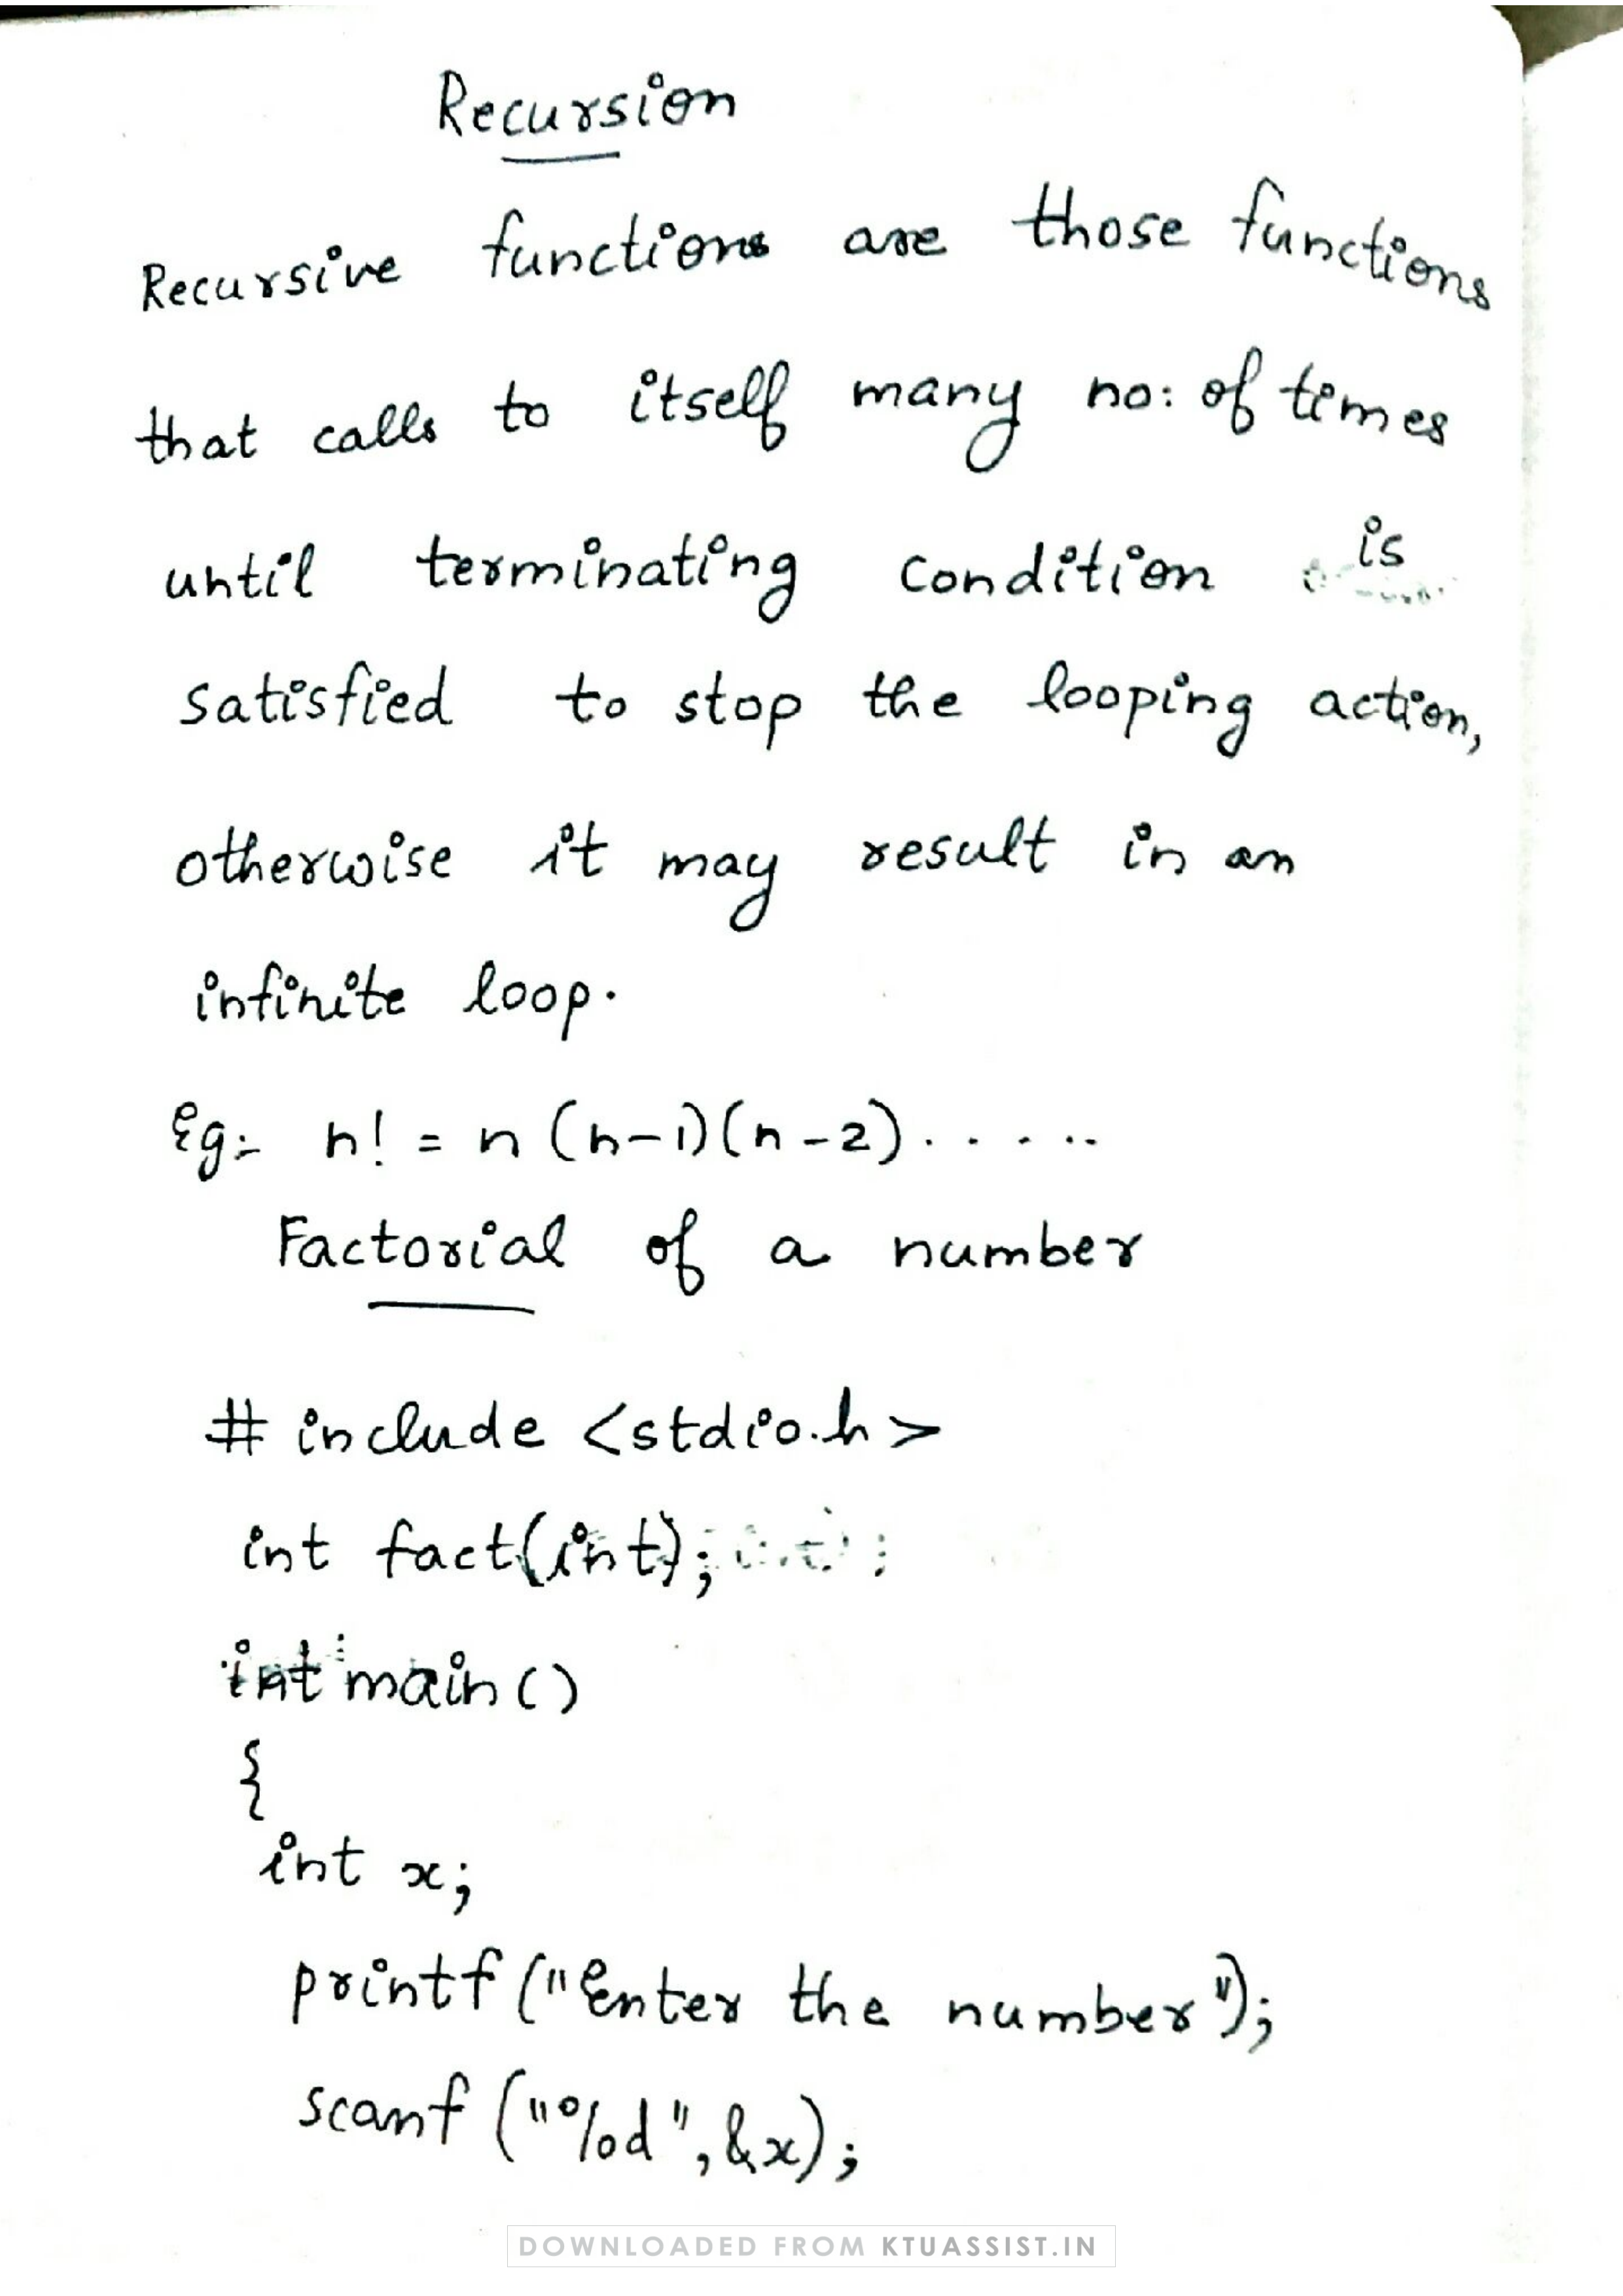 Recursion
Recursive functions are those functions
that calls to itself many no: of times
until terminating condition is
satisfied to stop the looping action,
otherwise it may result in an
infinite loop.
Eg:- n! = n (n-1)(n-2)......
Factorial of a number
# include <stdio.h>
int fact(int);
int main()
{
int x;
printf("Enter the number");
scanf("%d",&x);
DOWNLOADED FROM KTUASSIST.IN